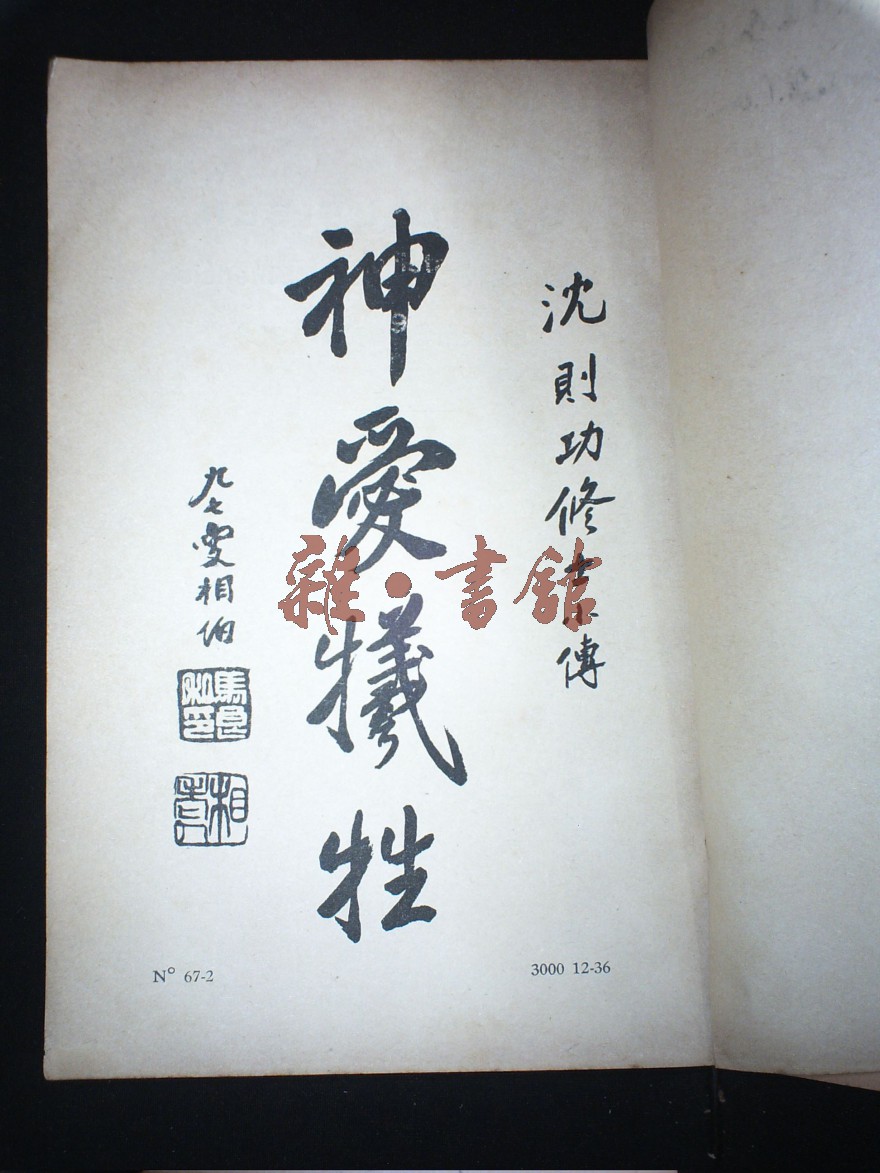 沈則功修士小傳
神愛犧牲
九七叟相伯
馬良私印
雜·書館
N° 67-2
3000 12-36